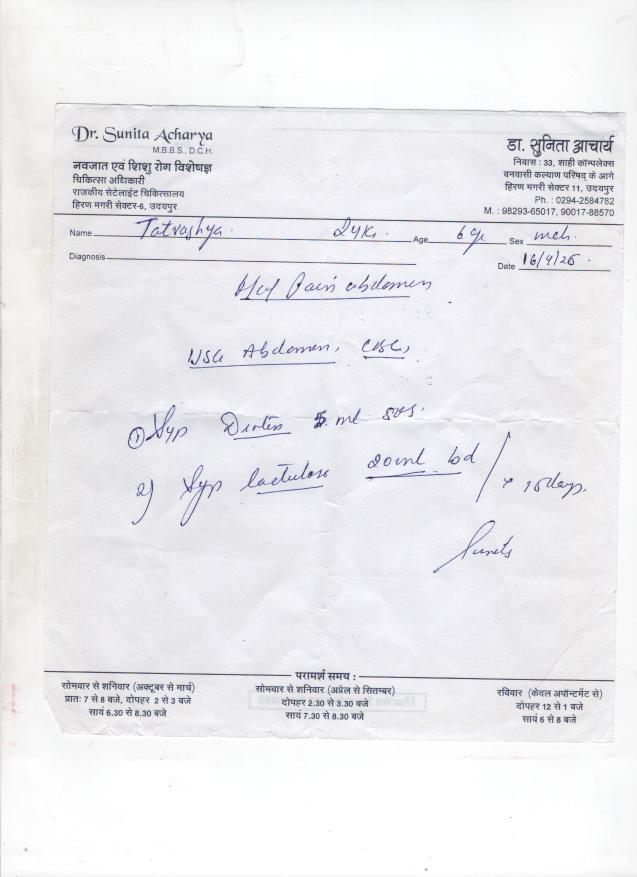 Dr. Sunita Acharya
M.B.B.S., D.C.H.
नवजात एवं शिशु रोग विशेषज्ञ
चिकित्सा अधिकारी
राजकीय सेटेलाईट चिकित्सालय
हिरण मगरी सेक्टर-6, उदयपुर
डा. सुनिता आचार्य
निवास : 33, शाही कॉम्पलेक्स
वनवासी कल्याण परिषद् के आगे
हिरण मगरी सेक्टर 11, उदयपुर
Ph. : 0294-2584782
M. : 98293-65017, 90017-88570
Name Tatvashya. 24K. Age 6 Sex
Diagnosis
Date 16/4/26.
Pain abdomen
USG Abdomen, CBC,
① Syp 5 ml sos.
2) Syp lactulose 20ml bd / x 15days.
परामर्श समय :
सोमवार से शनिवार (अक्टूबर से मार्च)
प्रातः 7 से 8 बजे, दोपहर 2 से 3 बजे
सायं 6.30 से 8.30 बजे
सोमवार से शनिवार (अप्रेल से सितम्बर)
दोपहर 2.30 से 3.30 बजे
सायं 7.30 से 8.30 बजे
रविवार (केवल अपॉन्टमेंट से)
दोपहर 12 से 1 बजे
सायं 6 से 8 बजे